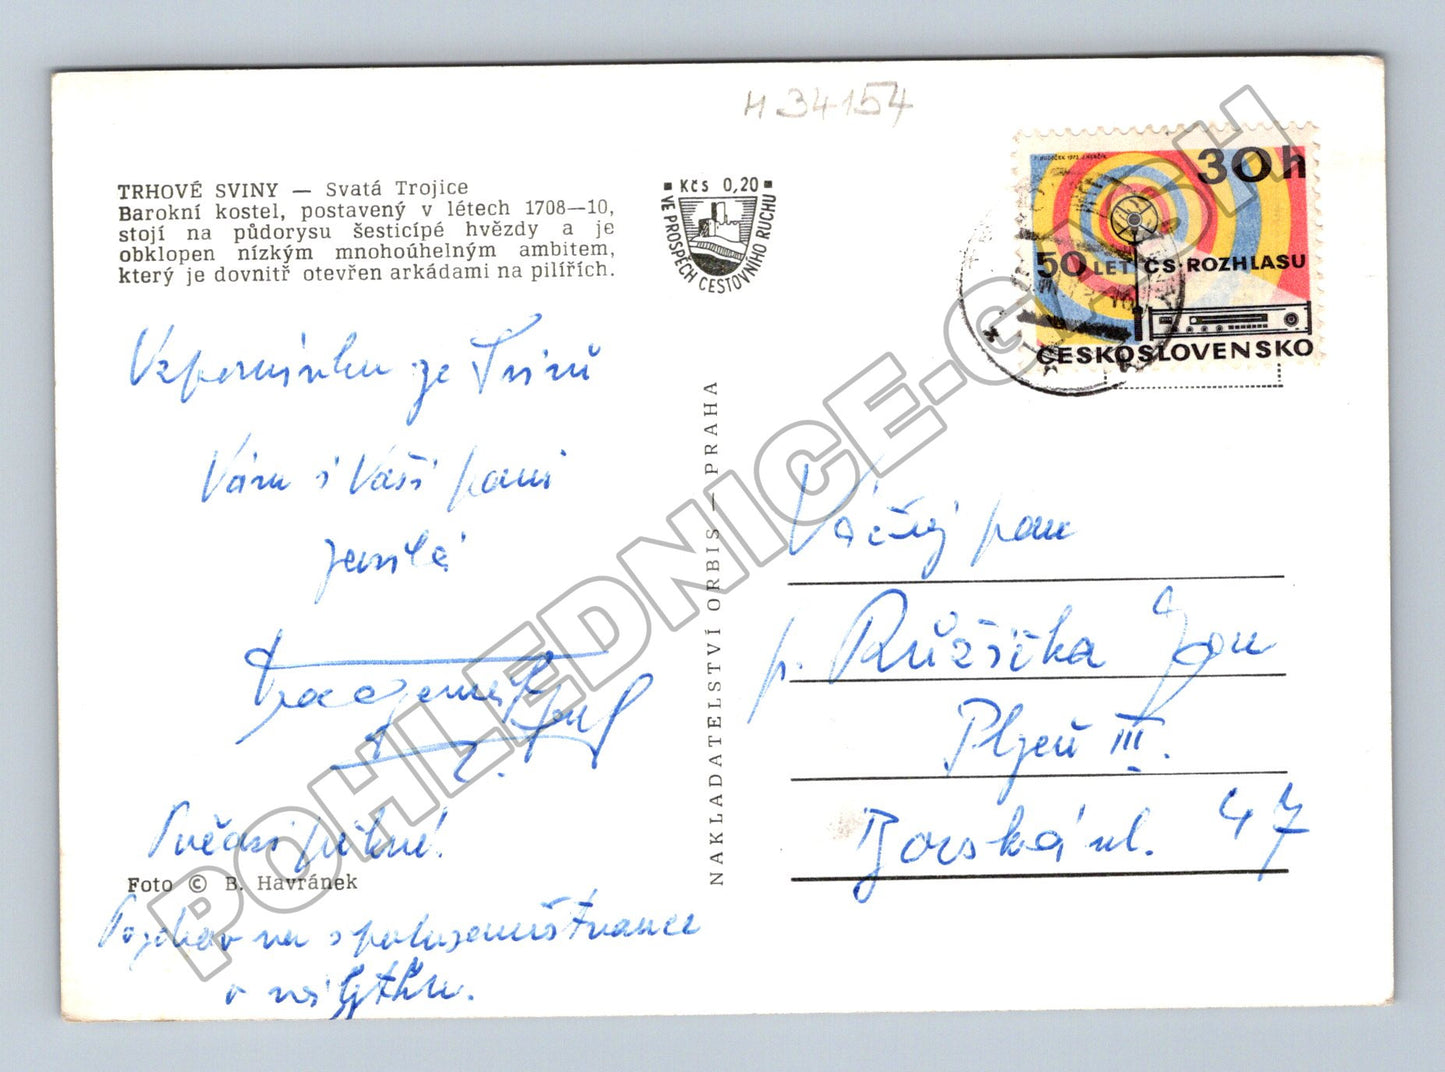 H 34154
TRHOVÉ SVINY — Svatá Trojice
Barokní kostel, postavený v létech 1708—10,
stojí na půdorysu šesticípé hvězdy a je
obklopen nízkým mnohoúhelným ambitem,
který je dovnitř otevřen arkádami na pilířích.
Kčs 0,20
VE PROSPĚCH CESTOVNÍHO RUCHU
30h
50 LET ČS·ROZHLASU
ČESKOSLOVENSKO
Vzpomínku ze Svinů
Vám i Vaší paní
zasílá
pěkné.
Foto © B. Havránek
Pozdrav
v
NAKLADATELSTVÍ ORBIS — PRAHA
Vážený pan
p. Růžička Jan
Plzeň III.
Borská ul. 47
POHLEDNICE-CASH